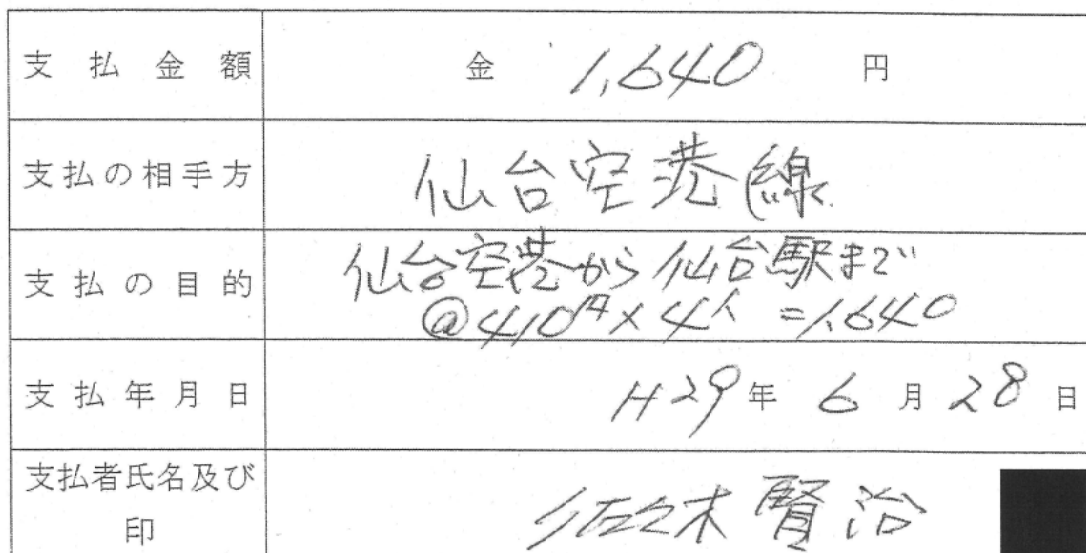 支払金額 金 1,640 円
支払の相手方 仙台空港線
仙台空港から仙台駅まで
支払の目的
@410円×4人=1,640
支払年月日 H29年 6月28日
支払者氏名及び
印
佐々木賢治